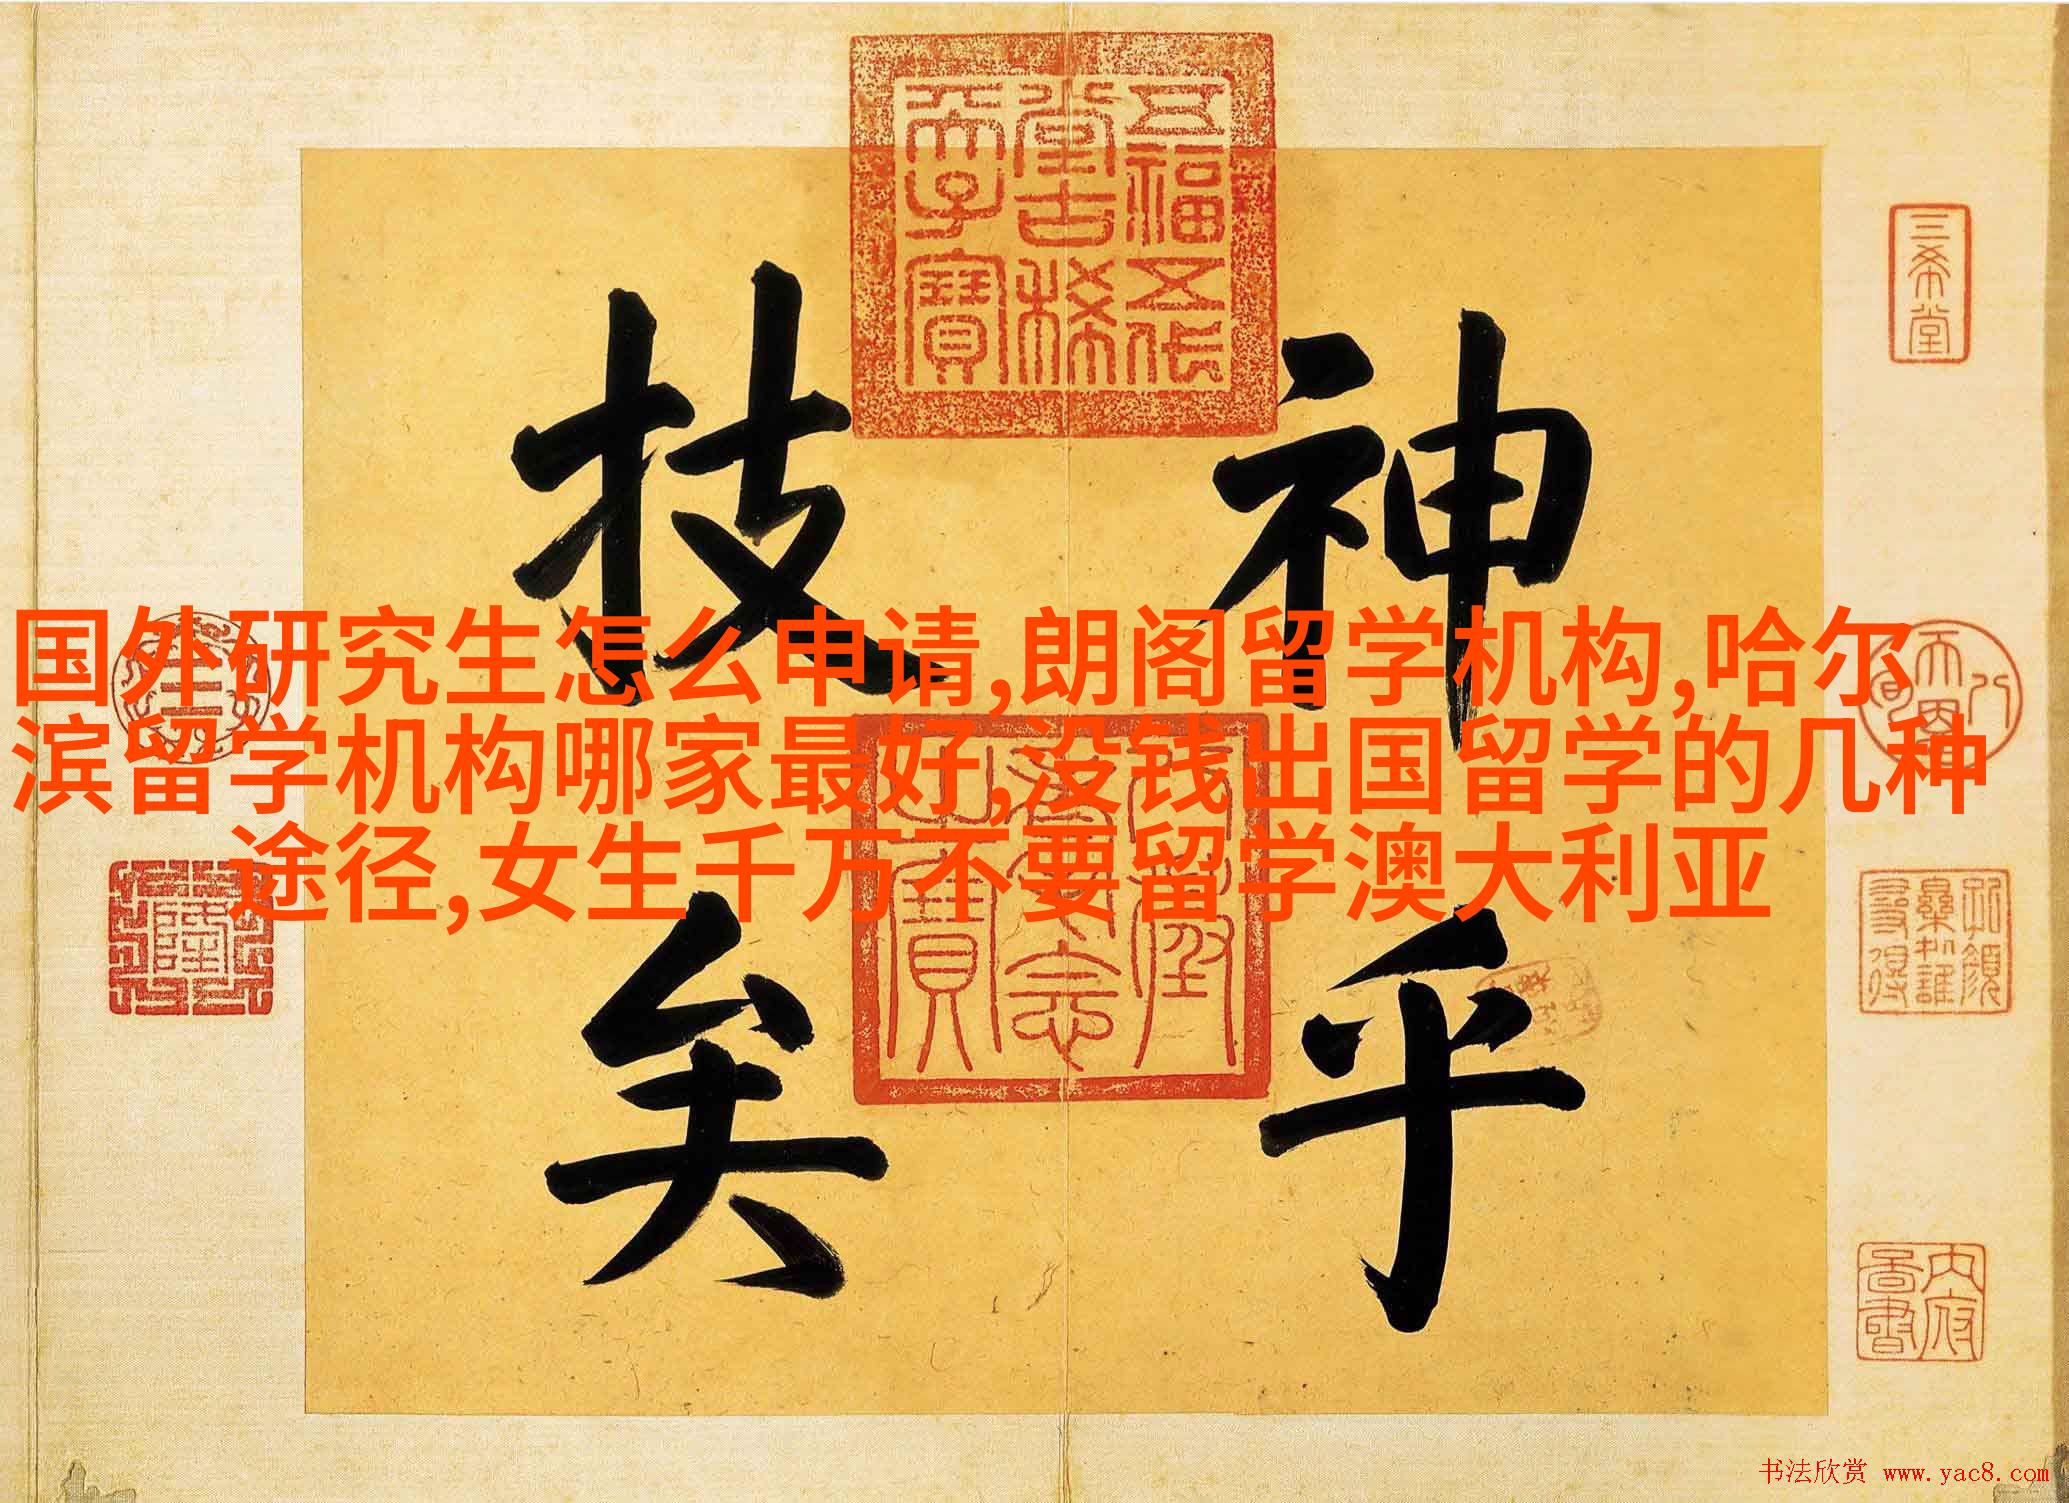 国外研究生怎么申请,朗阁留学机构,哈尔
滨留学机构哪家最好,没钱出国留学的几种
途径,女生千万不要留学澳大利亚
神乎
技矣
五福五代
堂古稀
天子寶
三希堂
书法欣赏 www.yac8.com